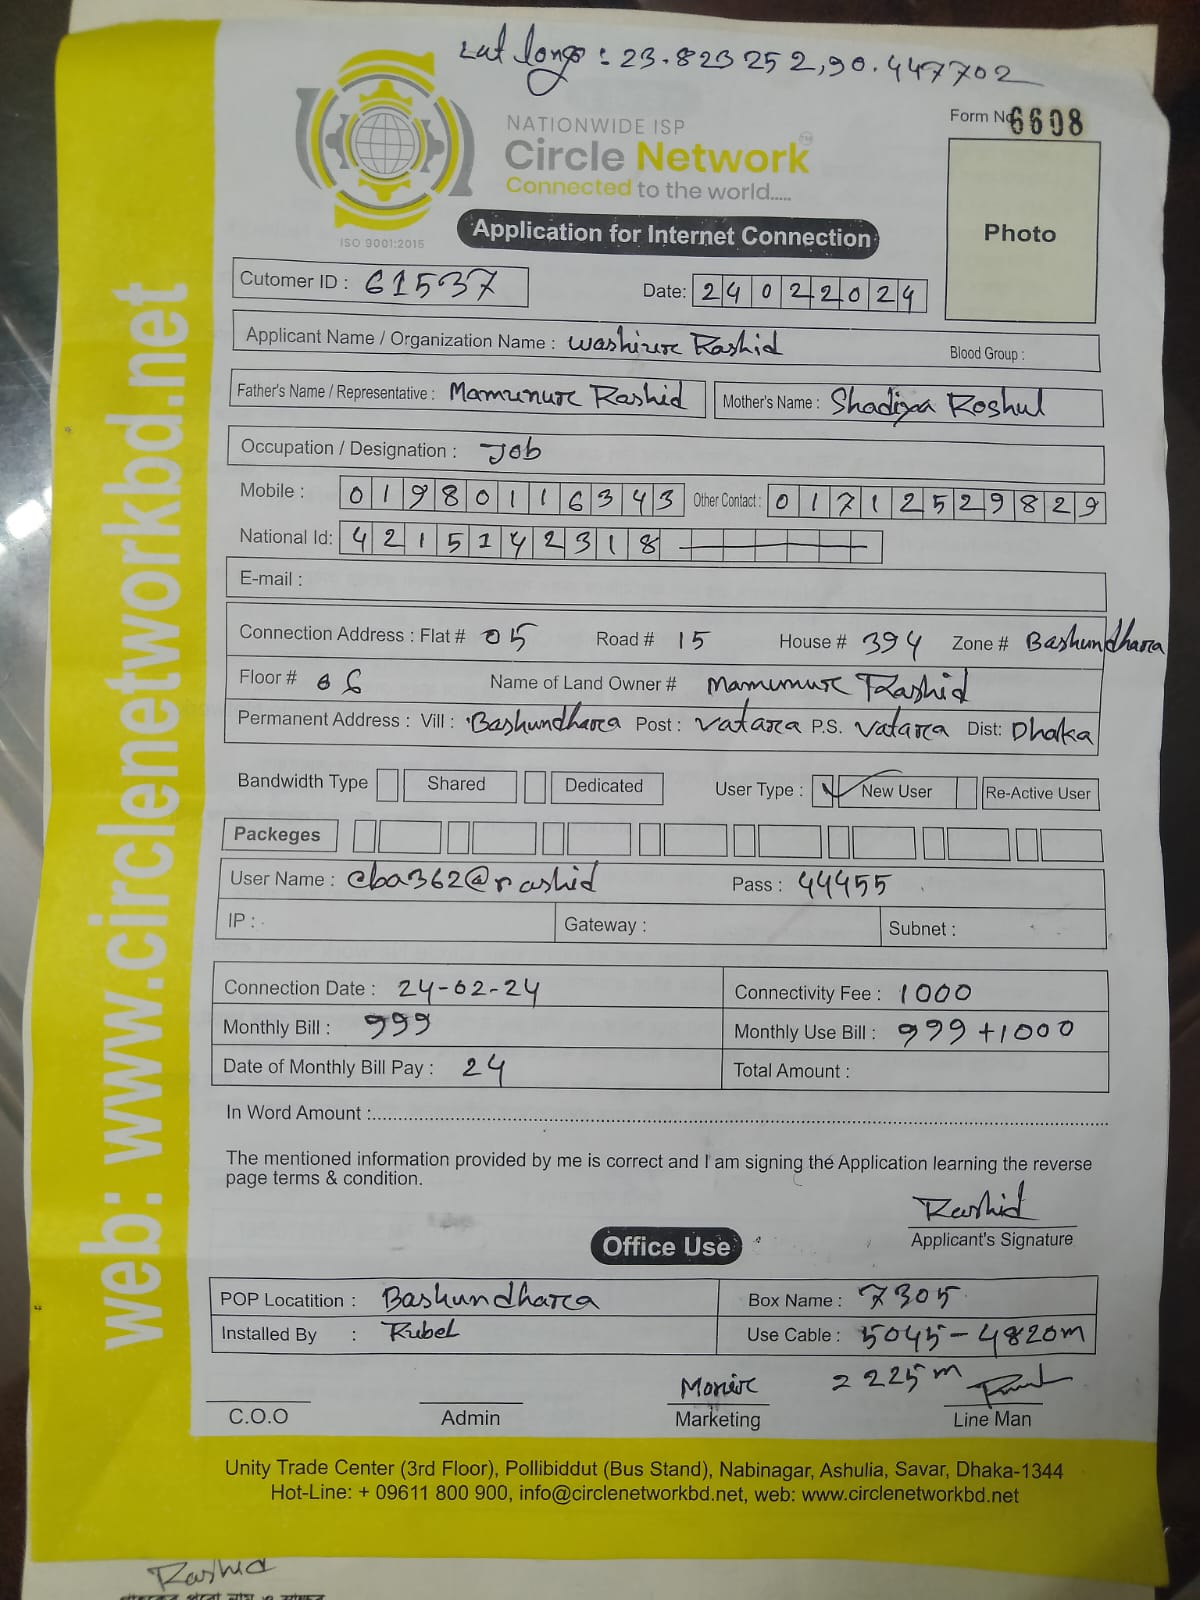 Lat long : 23.823252,90.447702
Form No 6608
NATIONWIDE ISP
Circle Network TM
Connected to the world.....
ISO 9001:2015
Application for Internet Connection
Photo
Cutomer ID : 61537
Date: 24022024
Applicant Name / Organization Name : Washirur Rashid
Blood Group :
Father's Name / Representative : Mamunur Rashid
Mother's Name : Shadiya Roshul
Occupation / Designation : Job
Mobile : 01980116343 Other Contact : 01712529829
National Id: 4215142318
E-mail :
Connection Address : Flat # 05 Road # 15 House # 394 Zone # Bashundhara
Floor # 06 Name of Land Owner # Mamunur Rashid
Permanent Address : Vill : Bashundhara Post : Vatara P.S. Vatara Dist: Dhaka
Bandwidth Type Shared Dedicated User Type : New User Re-Active User
Packeges
User Name : cba362@rashid Pass : 44455
IP : Gateway : Subnet :
Connection Date : 24-02-24 Connectivity Fee : 1000
Monthly Bill : 999 Monthly Use Bill : 999+1000
Date of Monthly Bill Pay : 24 Total Amount :
In Word Amount :
The mentioned information provided by me is correct and I am signing the Application learning the reverse
page terms & condition.
Rashid
Applicant's Signature
Office Use
POP Locatition : Bashundhara Box Name : 7305
Installed By : Rubel Use Cable : 5045-4820m
Monir 2 225m
C.O.O Admin Marketing Line Man
Unity Trade Center (3rd Floor), Pollibiddut (Bus Stand), Nabinagar, Ashulia, Savar, Dhaka-1344
Hot-Line: + 09611 800 900, info@circlenetworkbd.net, web: www.circlenetworkbd.net
web: www.circlenetworkbd.net
Rashid